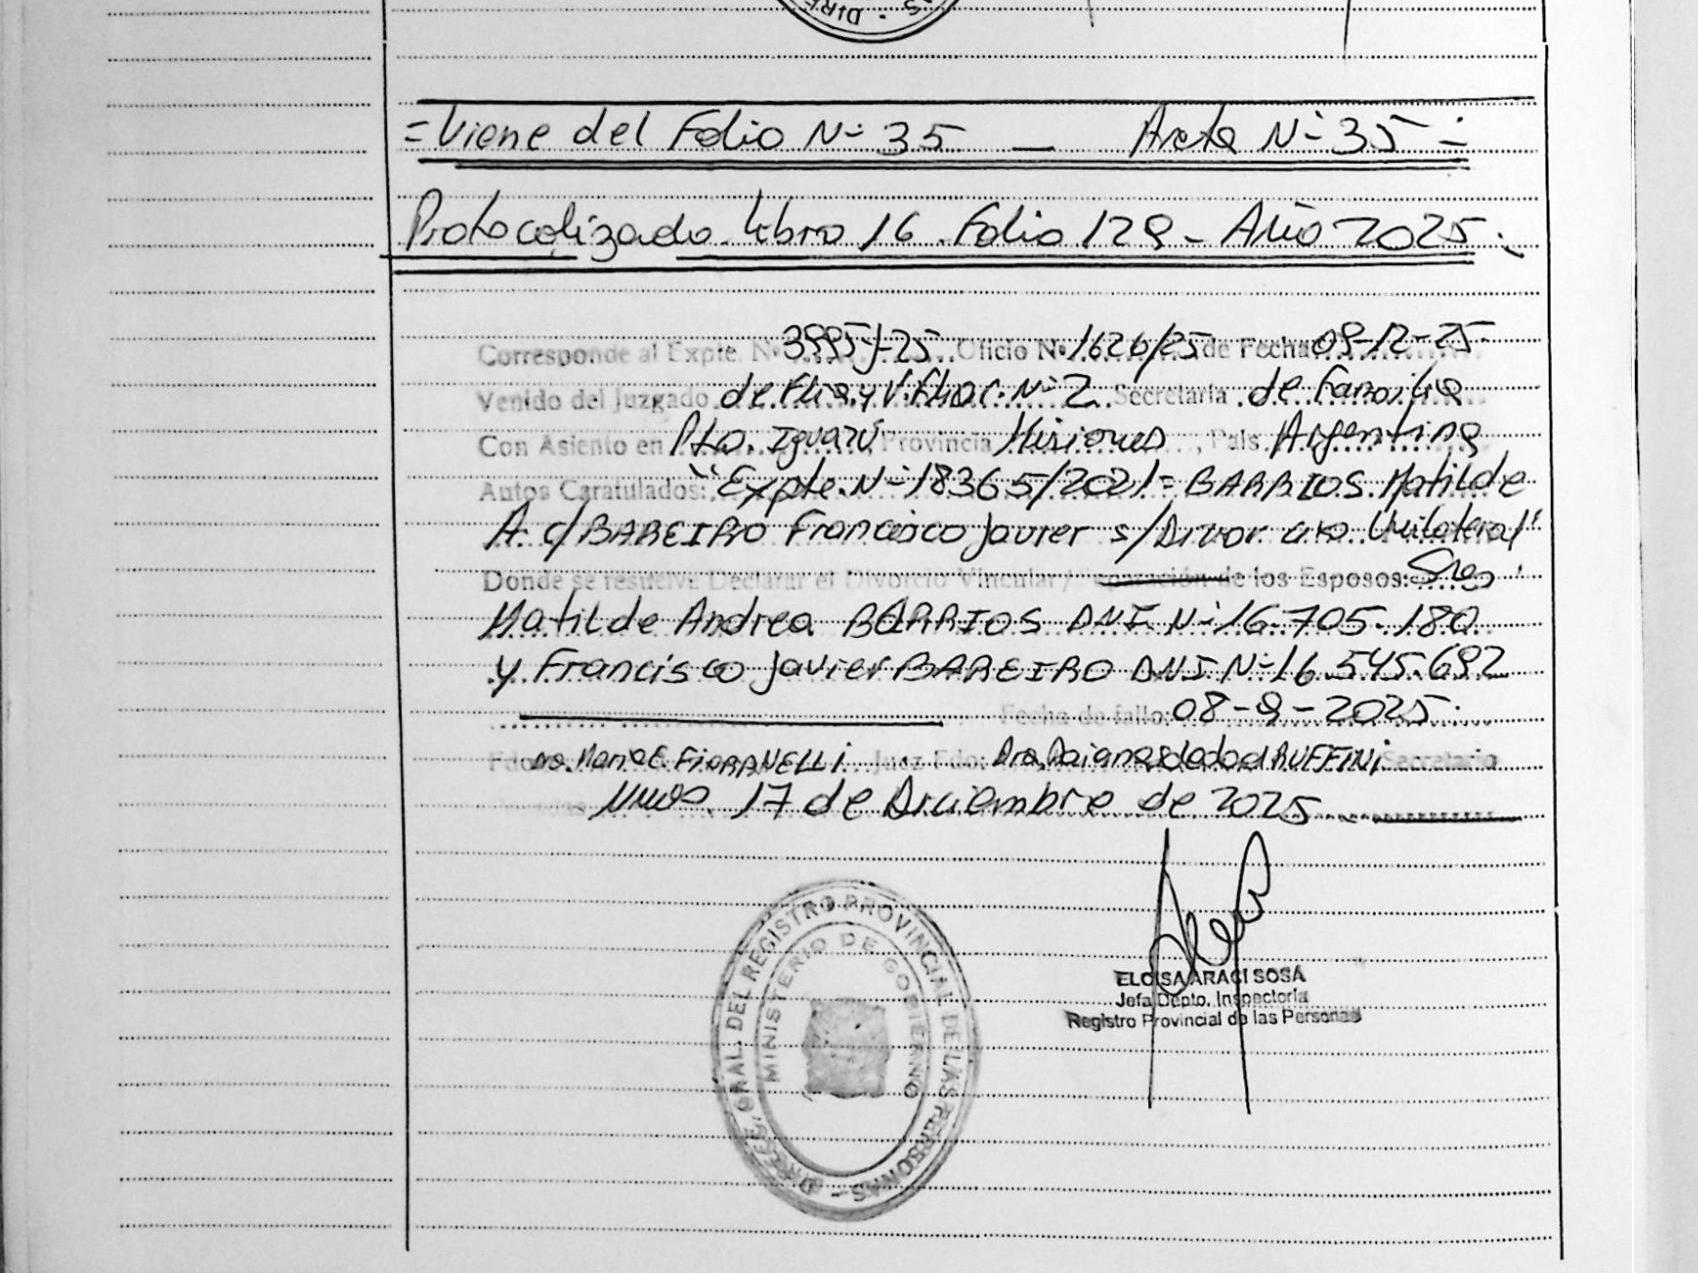 =Viene del Folio Nº 35 — Acta Nº 35=
Protocolizado Libro 16 Folio 129 - Año 2025.
Corresponde al Expte. Nº 3995-J-25 Oficio Nº 1626/25 de Fecha 09-12-25
Venido del Juzgado de Flia. y V. Fliar. Nº 2 Secretaría de Familia
Con Asiento en Pto. Iguazú, Provincia Misiones, País Argentina
Autos Caratulados: "Expte. Nº 18365/2021= BARRIOS Matilde
A. c/ BAREIRO Francisco Javier s/ Divorcio Unilateral"
Donde se resuelve Declarar el Divorcio Vincular / Separación de los Esposos: Sres
Matilde Andrea BARRIOS DNI Nº 16.705.180
y Francisco Javier BAREIRO DNI Nº 16.545.692
Fecha de fallo: 08-9-2025.
Fdo. Dra. Maria E. FIORANELLI Juez Fdo: Dra. Daiana Soledad RUFFINI Secretario
17 de Diciembre de 2025
ELOISA ARACI SOSA
Jefa Depto. Inspectoría
Registro Provincial de las Personas
DIREC. GRAL. DEL REGISTRO PROVINCIAL DE LAS PERSONAS -
MINISTERIO DE GOBIERNO